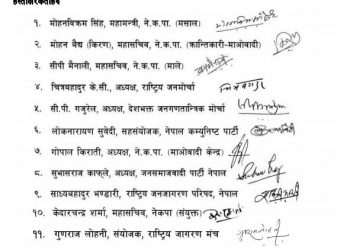 हस्ताक्षरकर्ताहरु
१. मोहनविक्रम सिंह, महामन्त्री, ने.क.पा. (मसाल)
२. मोहन बैद्य (किरण), महासचिव, ने.क.पा. (क्रान्तिकारी-माओवादी)
३. सीपी मैनाली, महासचिव, ने.क.पा. (माले)
४. चित्रबहादुर के.सी., अध्यक्ष, राष्ट्रिय जनमोर्चा
५. सी.पी. गजुरेल, अध्यक्ष, देशभक्त जनगणतान्त्रिक मोर्चा
६. लोकनारायण सुवेदी, सहसंयोजक, नेपाल कम्युनिष्ट पार्टी
७. गोपाल किराती, अध्यक्ष, ने.क.पा. (माओवादी केन्द्र)
८. सुभासराज काफ्ले, अध्यक्ष, जनसमाजवादी पार्टी नेपाल
९. साध्यबहादुर भण्डारी, राष्ट्रिय जनजागरण परिषद, नेपाल
१०. केदारचन्द्र शर्मा, महासचिव, नेकपा (संयुक्त)
११. गुणराज लोहनी, संयोजक, राष्ट्रिय जागरण मंच